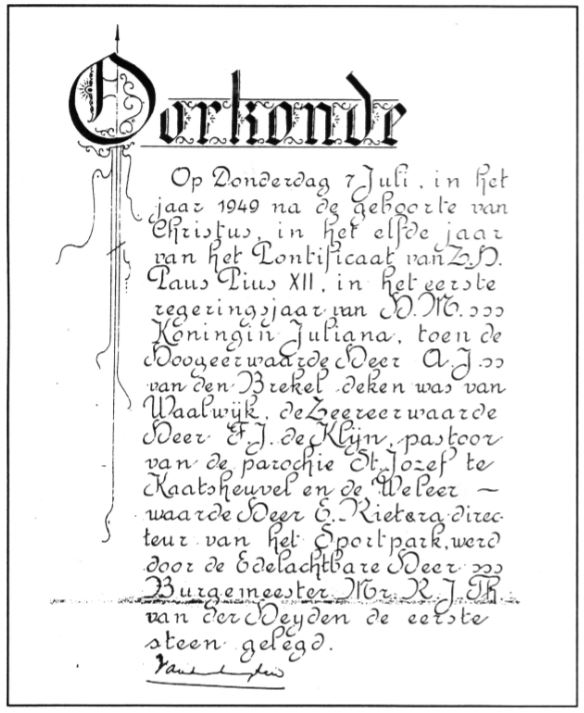 Oorkonde
Op Donderdag 7 Juli, in het
jaar 1949 na de geboorte van
Christus, in het elfde jaar
van het Pontificaat van Z.H.
Paus Pius XII, in het eerste
regeringsjaar van H.M.
Koningin Juliana, toen de
Hoogeerwaarde Heer A.J.
van den Brekel deken was van
Waalwijk, de Zeereerwaarde
Heer F.J. de Klijn, pastoor
van de parochie St. Jozef te
Kaatsheuvel en de Weleer –
waarde Heer E. Rietera direc-
teur van het Sportpark, werd
door de Edelachtbare Heer
Burgemeester Mr. R.J.Th.
van der Heyden de eerste
steen gelegd.